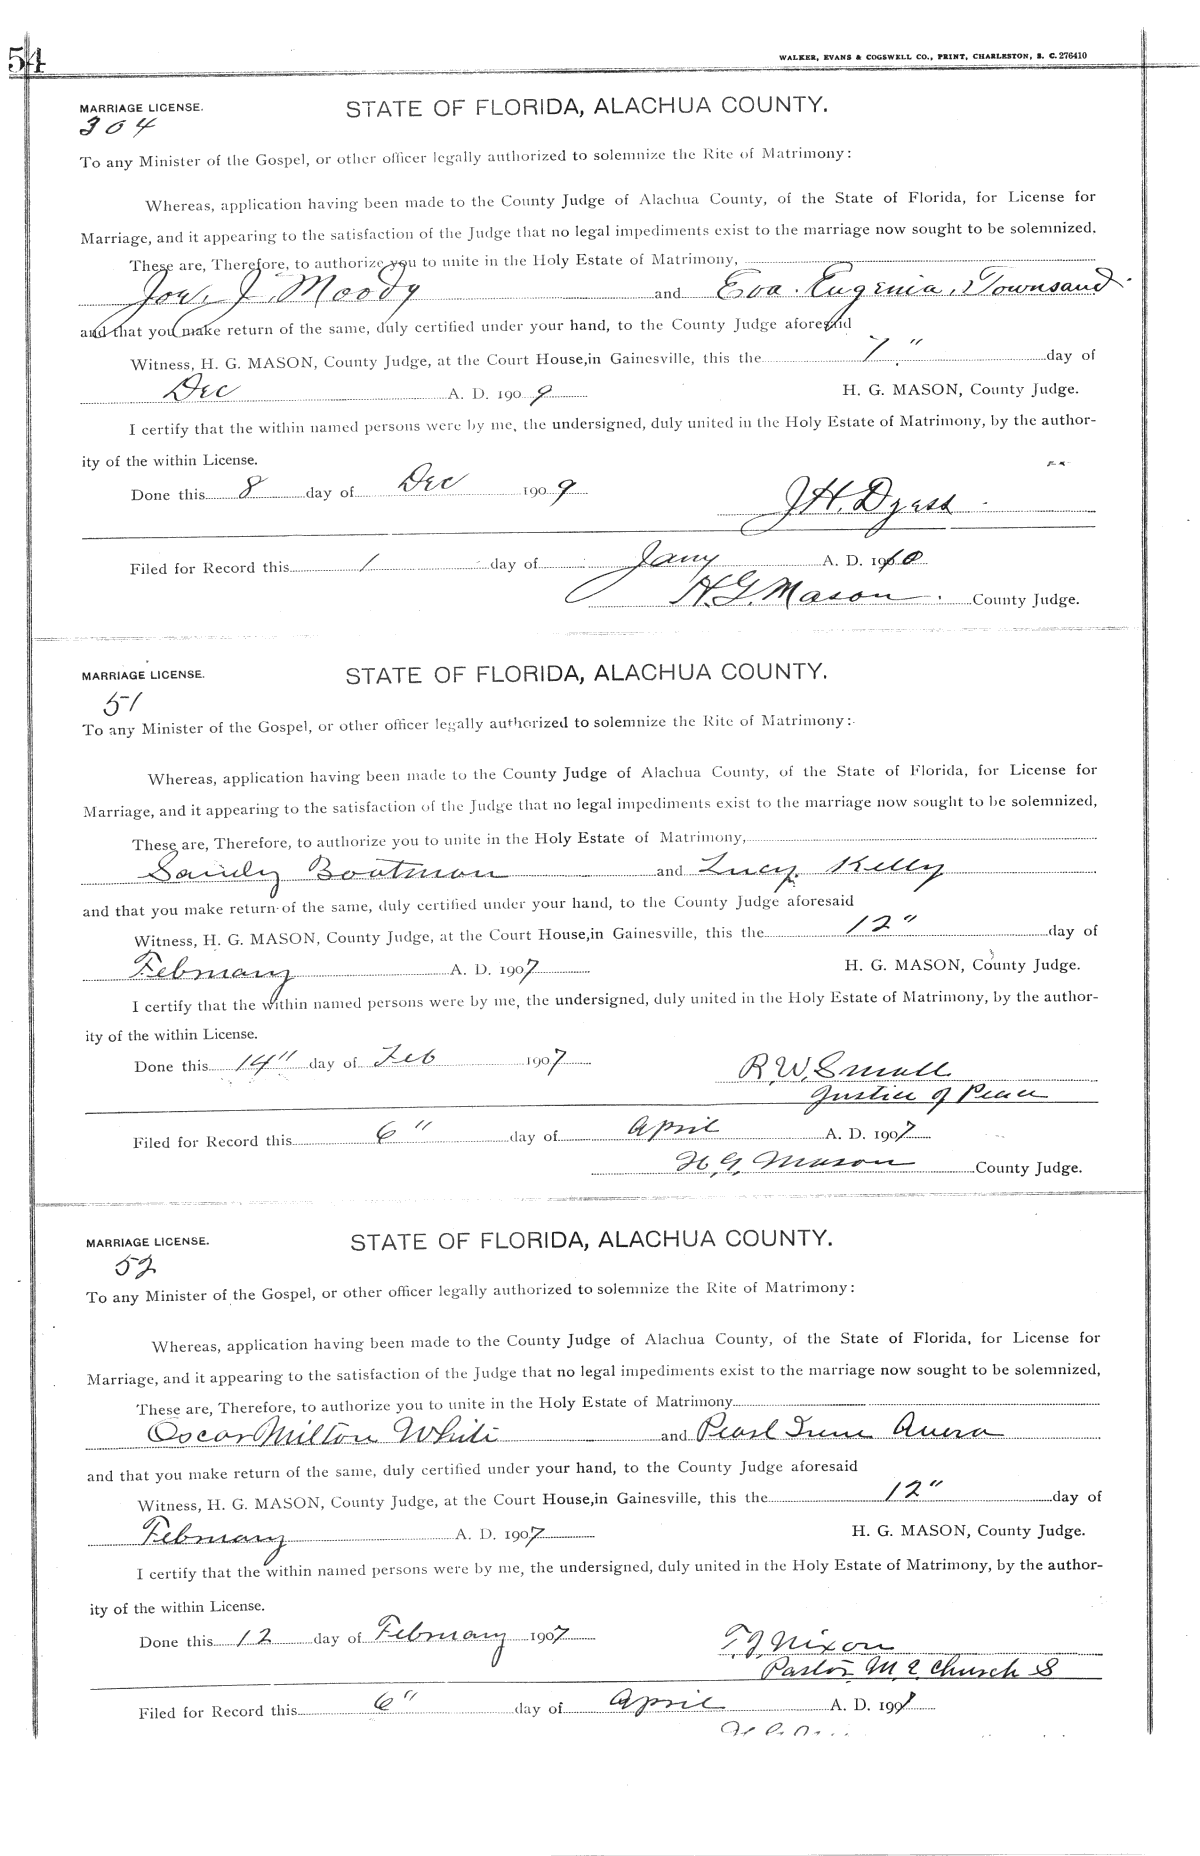 54
WALKER, EVANS & COGSWELL CO., PRINT, CHARLESTON, S. C. 276410
MARRIAGE LICENSE. STATE OF FLORIDA, ALACHUA COUNTY.
304
To any Minister of the Gospel, or other officer legally authorized to solemnize the Rite of Matrimony:
Whereas, application having been made to the County Judge of Alachua County, of the State of Florida, for License for
Marriage, and it appearing to the satisfaction of the Judge that no legal impediments exist to the marriage now sought to be solemnized.
These are, Therefore, to authorize you to unite in the Holy Estate of Matrimony,
J. Moody and Eva Eugenia Townsand
and that you make return of the same, duly certified under your hand, to the County Judge aforesaid
Witness, H. G. MASON, County Judge, at the Court House, in Gainesville, this the 7" day of
Dec A. D. 1909 H. G. MASON, County Judge.
I certify that the within named persons were by me, the undersigned, duly united in the Holy Estate of Matrimony, by the author-
ity of the within License.
Done this 8 day of Dec 1909
J. H. Dyess
Filed for Record this 1 day of Jany A. D. 1910
H. G. Mason County Judge.
MARRIAGE LICENSE. STATE OF FLORIDA, ALACHUA COUNTY.
51
To any Minister of the Gospel, or other officer legally authorized to solemnize the Rite of Matrimony:
Whereas, application having been made to the County Judge of Alachua County, of the State of Florida, for License for
Marriage, and it appearing to the satisfaction of the Judge that no legal impediments exist to the marriage now sought to be solemnized,
These are, Therefore, to authorize you to unite in the Holy Estate of Matrimony,
Sandy Boatman and Lucy Kelly
and that you make return of the same, duly certified under your hand, to the County Judge aforesaid
Witness, H. G. MASON, County Judge, at the Court House, in Gainesville, this the 12" day of
February A. D. 1907 H. G. MASON, County Judge.
I certify that the within named persons were by me, the undersigned, duly united in the Holy Estate of Matrimony, by the author-
ity of the within License.
Done this 14" day of Feb 1907 R. W. Small
Justice of Peace
Filed for Record this 6" day of April A. D. 1907
H. G. Mason County Judge.
MARRIAGE LICENSE. STATE OF FLORIDA, ALACHUA COUNTY.
52
To any Minister of the Gospel, or other officer legally authorized to solemnize the Rite of Matrimony:
Whereas, application having been made to the County Judge of Alachua County, of the State of Florida, for License for
Marriage, and it appearing to the satisfaction of the Judge that no legal impediments exist to the marriage now sought to be solemnized,
These are, Therefore, to authorize you to unite in the Holy Estate of Matrimony
Oscar Milton White and Pearl Irene Avera
and that you make return of the same, duly certified under your hand, to the County Judge aforesaid
Witness, H. G. MASON, County Judge, at the Court House, in Gainesville, this the 12" day of
February A. D. 1907 H. G. MASON, County Judge.
I certify that the within named persons were by me, the undersigned, duly united in the Holy Estate of Matrimony, by the author-
ity of the within License.
Done this 12 day of February 1907 T. J. Nixon
Pastor M. E. Church S
Filed for Record this 6" day of April A. D. 1907